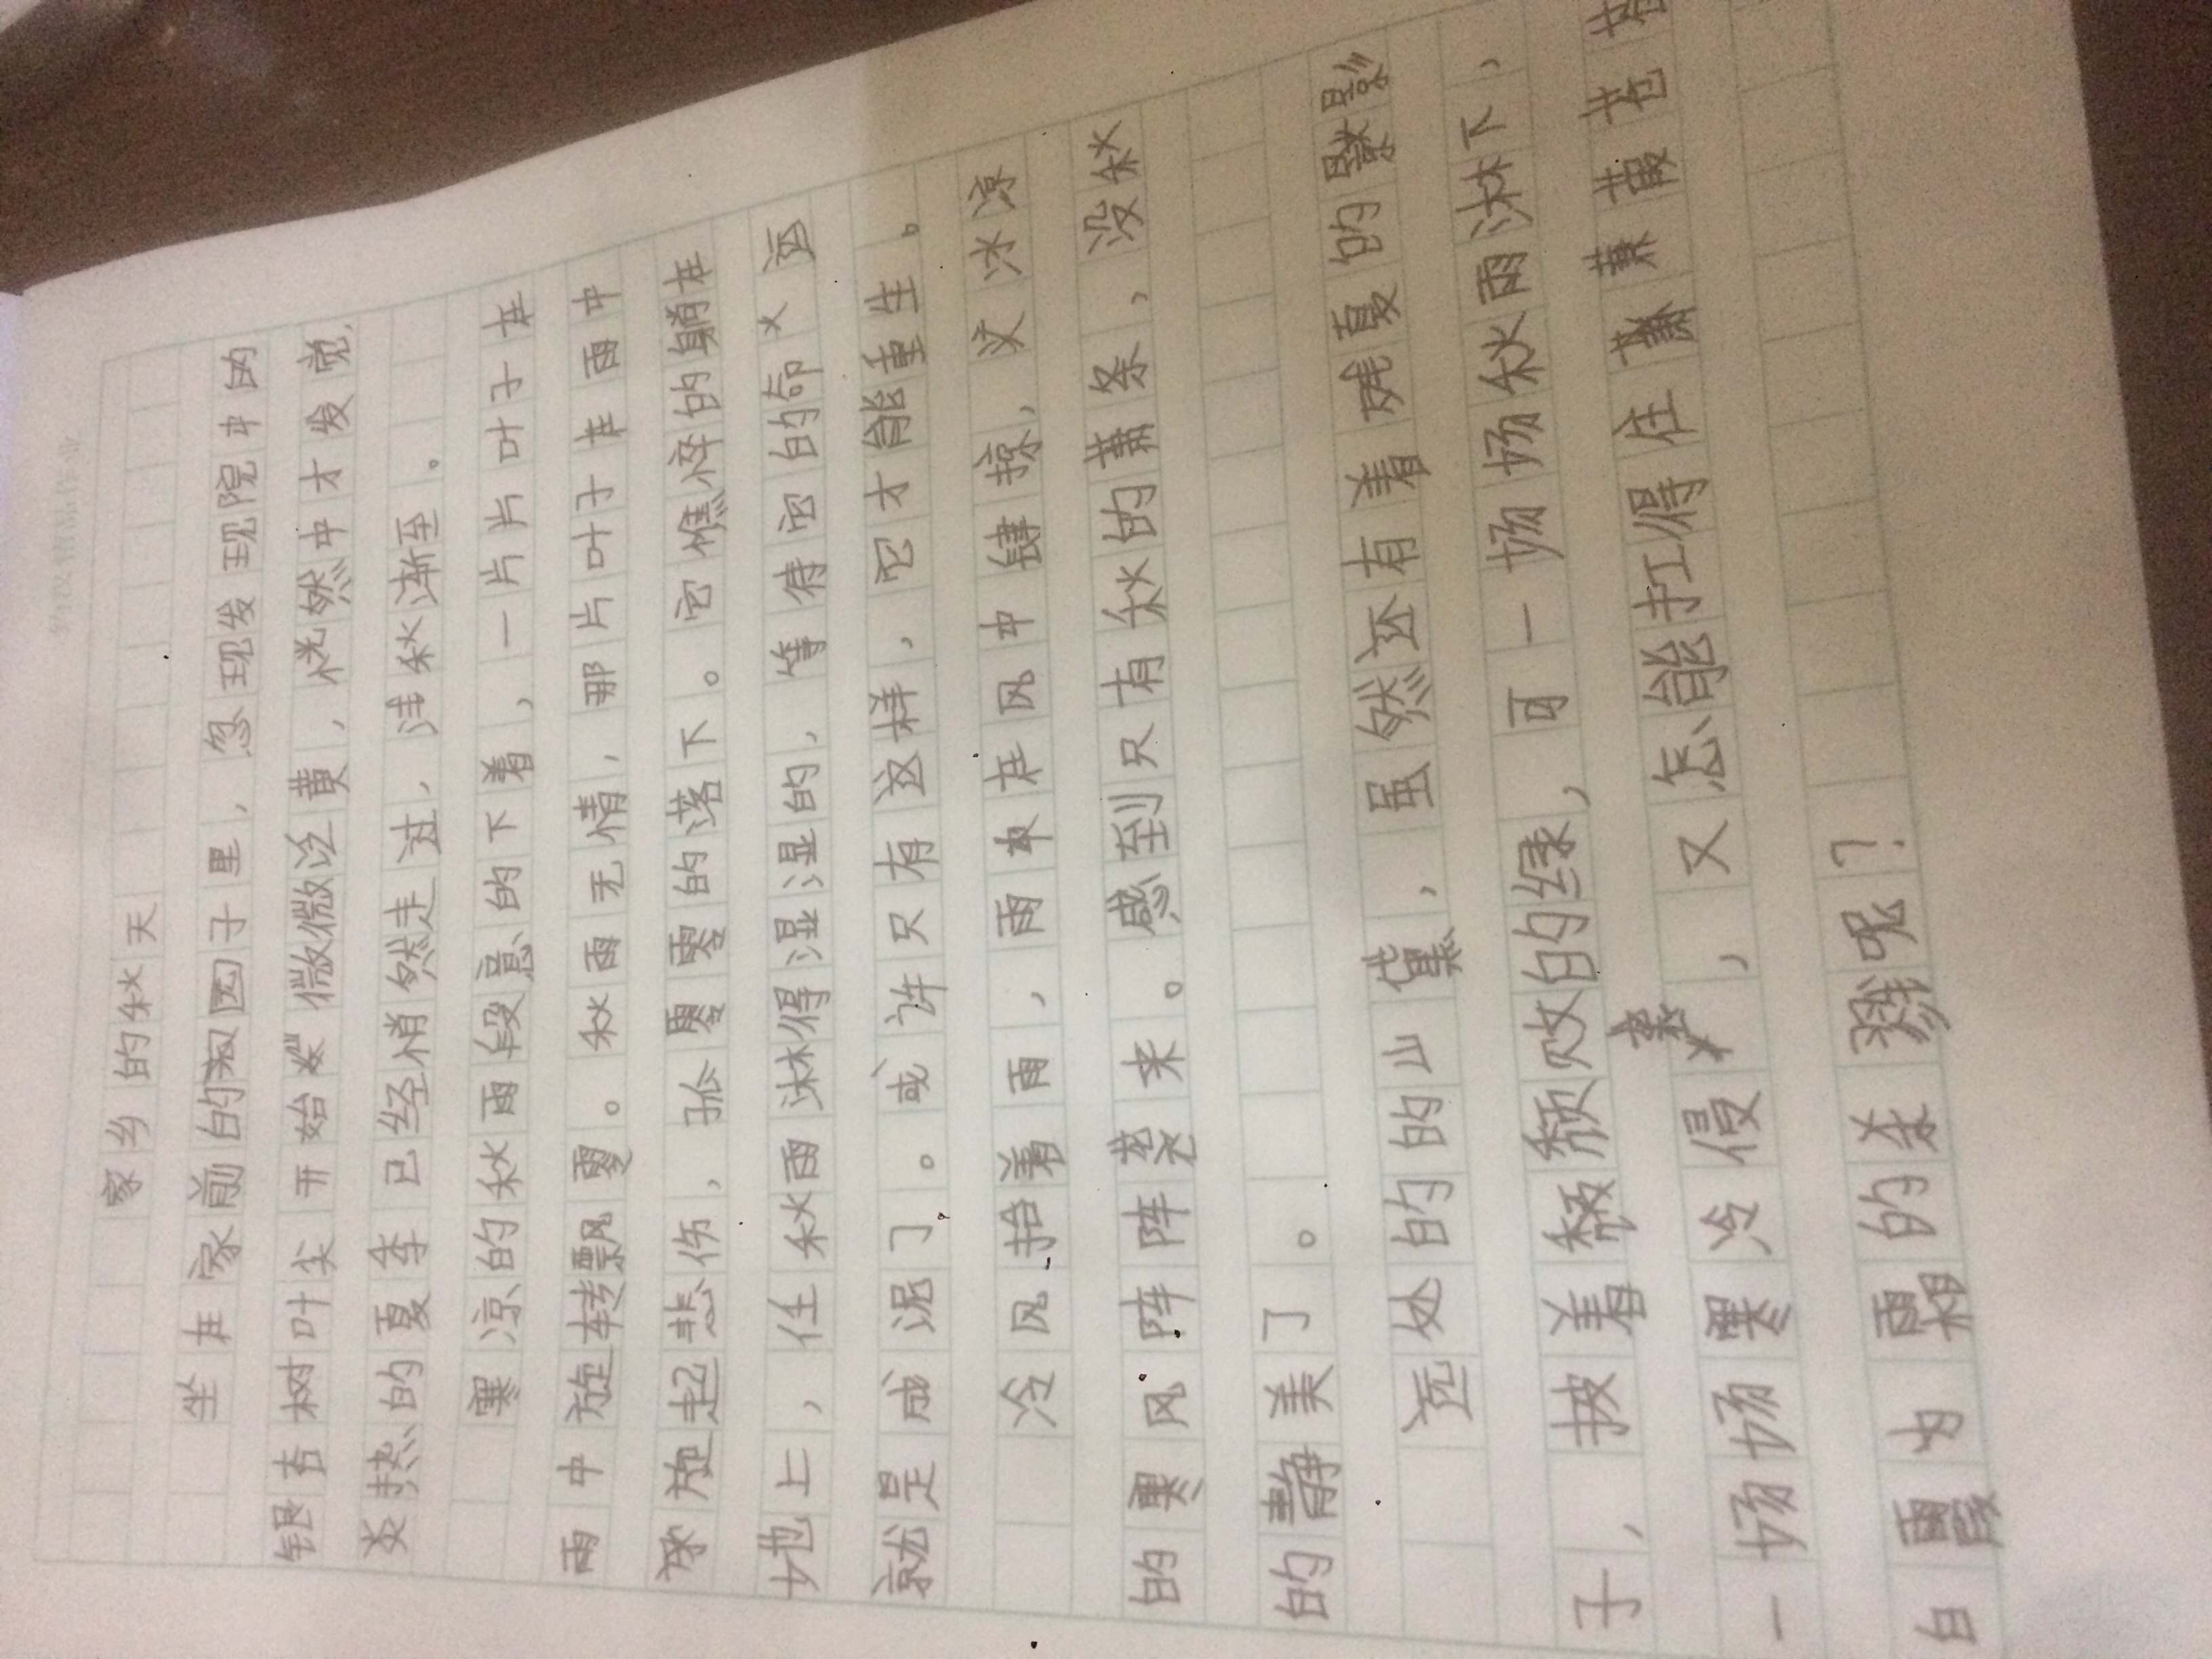 家乡的秋天
坐在家前的园子里，忽现发现院中的
银杏树叶尖开始微微泛黄，恍然中才发觉，
炎热的夏季已经悄然走过，浅秋渐至。
寒凉的秋雨段意的下着，一片片叶子在
雨中旋转飘零。秋雨无情，那片叶子在雨中
旋起悲伤，孤零零的落下。它憔悴的躺在
地上，任秋雨淋得湿湿的，等待它的命运
就是成泥了。或许只有这样，它才能重生。
冷风抬着雨，雨在风中肆掠，冰凉
的寒风阵阵袭来。感到只有秋的萧条，没秋
的静美了。
远处的的山黛，虽然还有着残夏的影
子，披着颓败的绿，可一场场秋雨淋下，
一场场寒冷侵袭，又怎能扛得住蒹葭苍苍
白露为霜的杀戮呢？